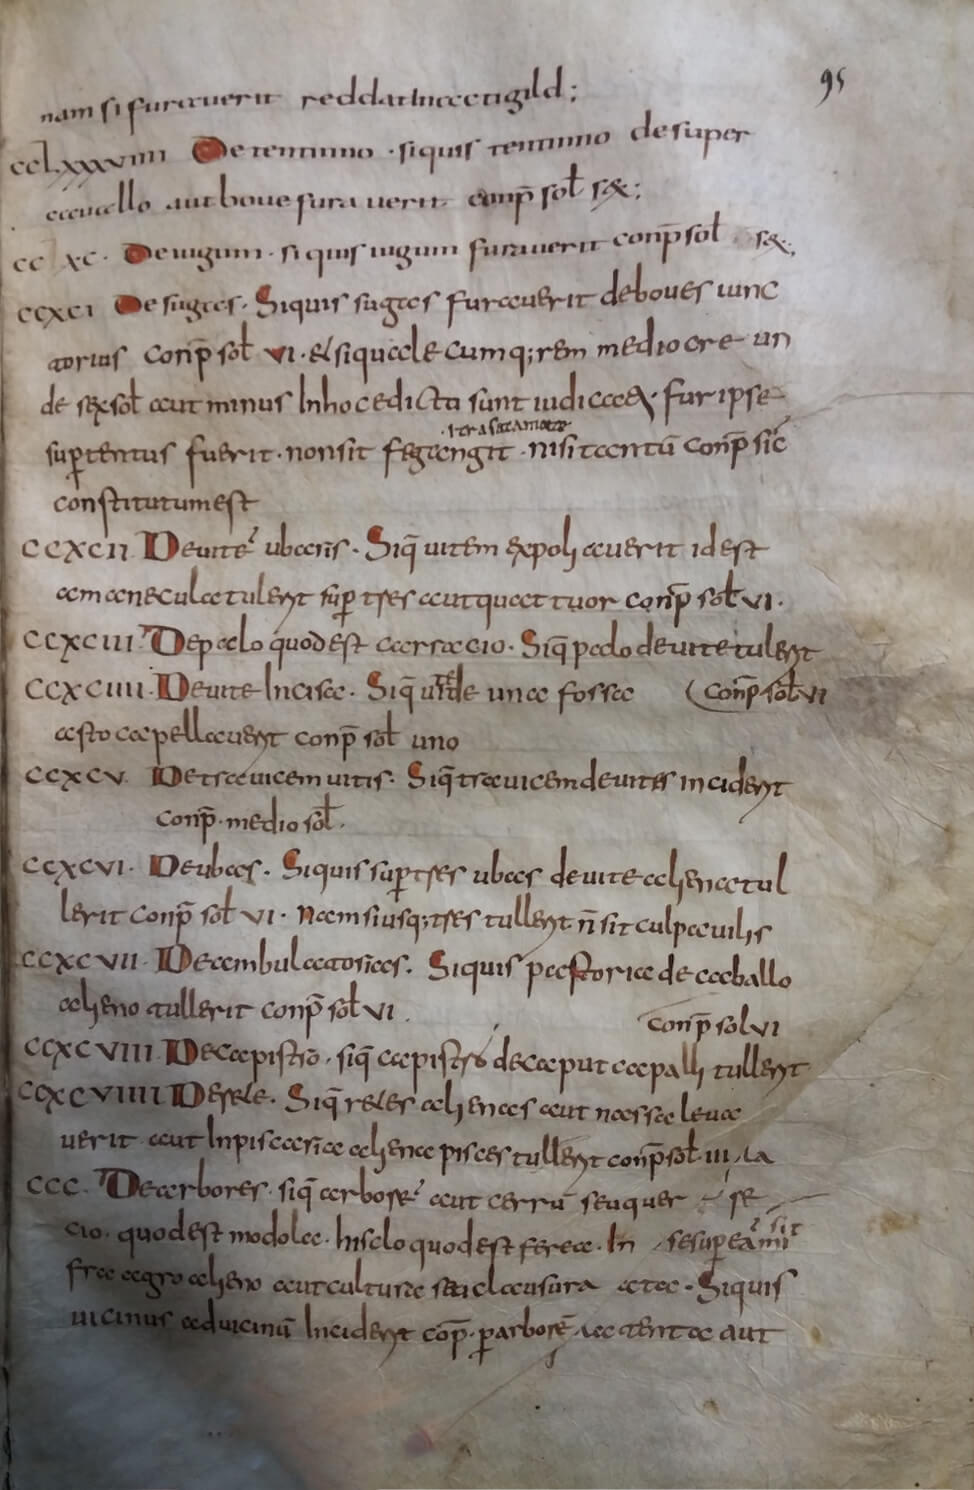 95
nam si furauerit reddat In actigild;
CCLXXXVIIII De tentinno · siquis tentinno de super
cauallo aut boue furauerit conp̄ sol̄ sex;
CCXC · De iugum · si quis iugum furauerit conp̄ sol̄ sex;
CCXCI De sugas · Siquis sugas furauerit de boues iunc
torius conp̄ sol̄ VI · et si qualecumq; rem mediocre un
de sex sol̄ aut minus In hoc edicta sunt iudicata · fur ipse
super tentus fuerit · non sit fegangit · nisi tantū conp̄ sic
constitutum est
CCXCII De uite ubariis · Siq̄ uitem expoliauerit id est
amaneculatulerit sup tres aut quattuor conp̄ sol̄ VI ·
CCXCIII De palo quod est carracio · Siq̄ palo de uite tulerit
CCXCIIII · De uite Incisa · Siq̄ uite de una fossa (conp̄ sol̄ VI
asto capellauerit conp̄ sol̄ uno
CCXCV De trauicem uitis · Siq̄ trauicem de uites inciderit
conp̄ · medio sol̄ ·
CCXCVI · De ubas · Siquis sup tres ubas de uite aliena tul
lerit conp̄ sol̄ VI · Nam si usq; tres tullerit n̄ sit culpauilis
CCXCVII De ambulatorias · Siquis pastoria de caballo
alieno tullerit conp̄ sol̄ VI ·
conp̄ sol VI
CCXCVIII De capistro · siq̄ capistro de caput caualli tullerit
CCXCVIIII De rete · Siq̄ retes alienas aut nassa leua
uerit aut In piscaria aliena pisces tullerit conp̄ sol̄ III ·
CCC · De arbores · siq̄ arbore aut cerrū seu quer se
cio · quod est modola · hisclo quod est fere a · In
fra agro alieno aut culture seu clausura · Siquis
uicinus ad uicinū Inciderit cop̄ · p arborē aut